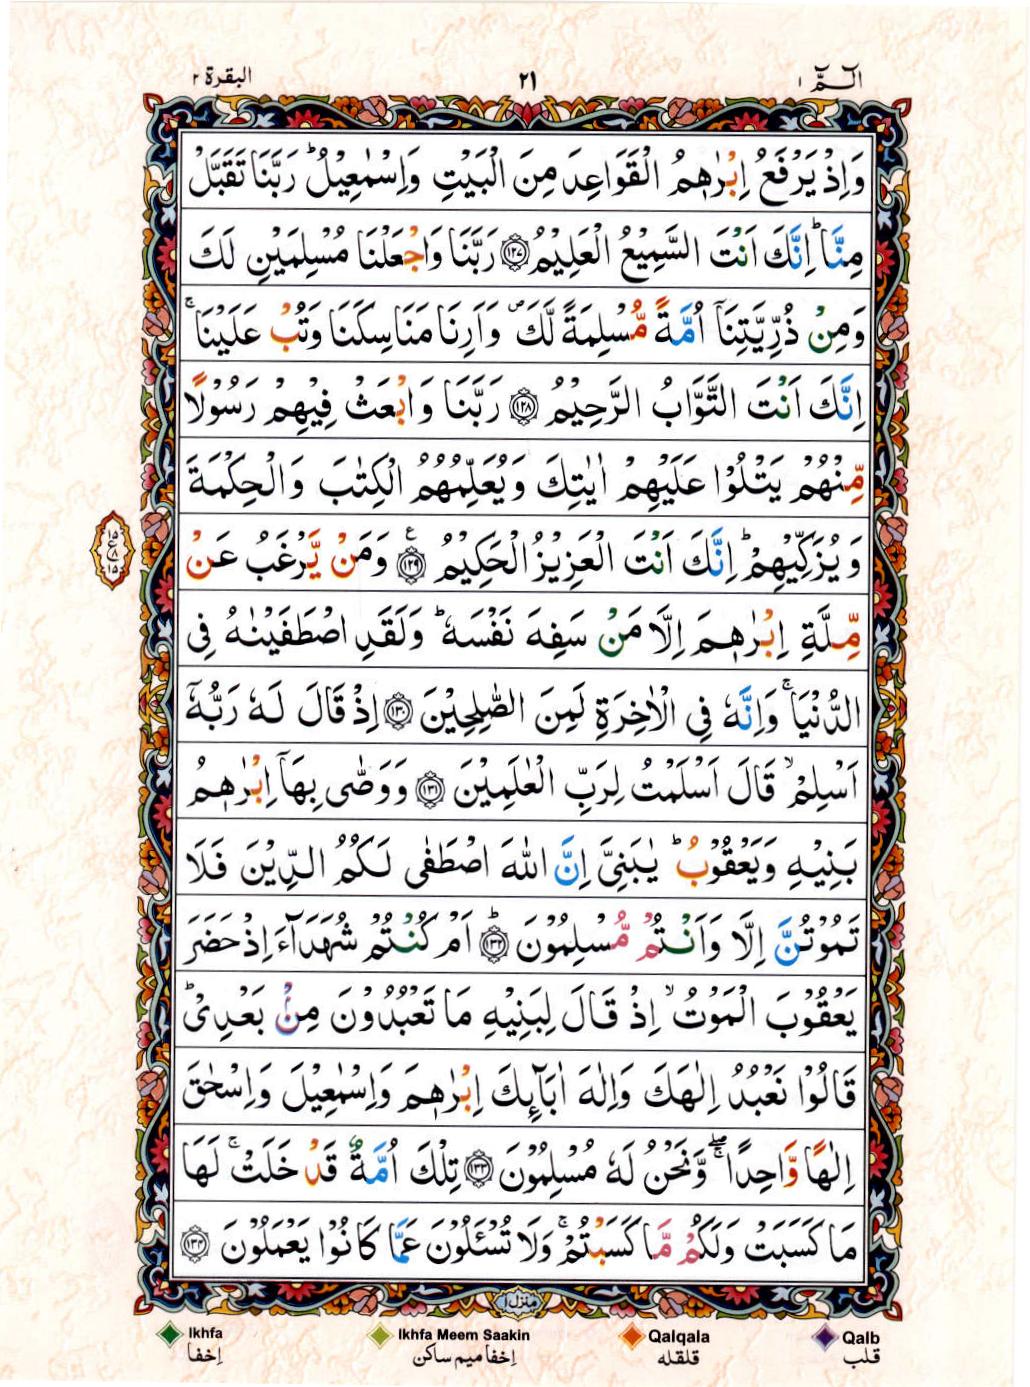 الٓمّٓ ١
٢١
البقرة ٢
وَاِذْ يَرْفَعُ اِبْرٰهٖمُ الْقَوَاعِدَ مِنَ الْبَيْتِ وَاِسْمٰعِيْلُ ؕ رَبَّنَا تَقَبَّلْ
مِنَّا ؕ اِنَّكَ اَنْتَ السَّمِيْعُ الْعَلِيْمُ ﴿۱۲۷﴾ رَبَّنَا وَاجْعَلْنَا مُسْلِمَيْنِ لَكَ
وَمِنْ ذُرِّيَّتِنَاۤ اُمَّةً مُّسْلِمَةً لَّكَ ۪ وَاَرِنَا مَنَاسِكَنَا وَتُبْ عَلَيْنَا ۚ
اِنَّكَ اَنْتَ التَّوَّابُ الرَّحِيْمُ ﴿۱۲۸﴾ رَبَّنَا وَابْعَثْ فِيْهِمْ رَسُوْلًا
مِّنْهُمْ يَتْلُوْا عَلَيْهِمْ اٰيٰتِكَ وَيُعَلِّمُهُمُ الْكِتٰبَ وَالْحِكْمَةَ
وَيُزَكِّيْهِمْ ؕ اِنَّكَ اَنْتَ الْعَزِيْزُ الْحَكِيْمُ ﴿۱۲۹﴾ ع وَمَنْ يَّرْغَبُ عَنْ
۱۵
ع
۸
۱۵
مِّلَّةِ اِبْرٰهٖمَ اِلَّا مَنْ سَفِهَ نَفْسَهٗ ؕ وَلَقَدِ اصْطَفَيْنٰهُ فِى
الدُّنْيَا ۚ وَاِنَّهٗ فِى الْاٰخِرَةِ لَمِنَ الصّٰلِحِيْنَ ﴿۱۳۰﴾ اِذْ قَالَ لَهٗ رَبُّهٗۤ
اَسْلِمْ ۙ قَالَ اَسْلَمْتُ لِرَبِّ الْعٰلَمِيْنَ ﴿۱۳۱﴾ وَوَصّٰى بِهَاۤ اِبْرٰهٖمُ
بَنِيْهِ وَيَعْقُوْبُ ؕ يٰبَنِىَّ اِنَّ اللّٰهَ اصْطَفٰى لَكُمُ الدِّيْنَ فَلَا
تَمُوْتُنَّ اِلَّا وَاَنْتُمْ مُّسْلِمُوْنَ ﴿۱۳۲﴾ ؕ اَمْ كُنْتُمْ شُهَدَآءَ اِذْ حَضَرَ
يَعْقُوْبَ الْمَوْتُ ۙ اِذْ قَالَ لِبَنِيْهِ مَا تَعْبُدُوْنَ مِنْۢ بَعْدِىْ ؕ
قَالُوْا نَعْبُدُ اِلٰهَكَ وَاِلٰهَ اٰبَآئِكَ اِبْرٰهٖمَ وَاِسْمٰعِيْلَ وَاِسْحٰقَ
اِلٰهًا وَّاحِدًا ۖۚ وَّنَحْنُ لَهٗ مُسْلِمُوْنَ ﴿۱۳۳﴾ تِلْكَ اُمَّةٌ قَدْ خَلَتْ ۚ لَهَا
مَا كَسَبَتْ وَلَكُمْ مَّا كَسَبْتُمْ ۚ وَلَا تُسْـَٔلُوْنَ عَمَّا كَانُوْا يَعْمَلُوْنَ ﴿۱۳۴﴾
منزل ١
Ikhfa
Ikhfa Meem Saakin
Qalqala
Qalb
إخفا
إخفا ميم ساكن
قلقله
قلب